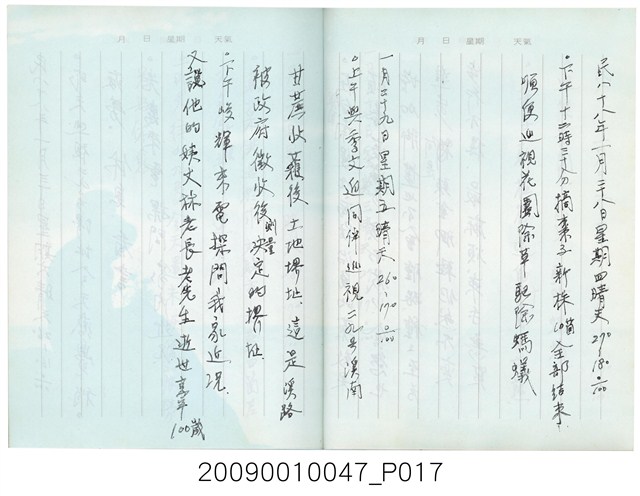 月 日 星期 天氣
民八十八年一月二十八日星期四晴天27°~18° 0/100
○下午十二時三十分摘棗子新採 全部結束.
順便巡視花園除草驅除螞蟻
一月二十九日星期五晴天26°~17° 0/100
○上午與季文迎同伴巡視 溪南
月 日 星期 天氣
甘蔗收穫後土地堺址.這是溪路
被政府徵收後測量決定的堺址.
○下午峻輝來電探問我家近況.
又講他的姨丈 老長老先生逝世享年100歲
20090010047_P017